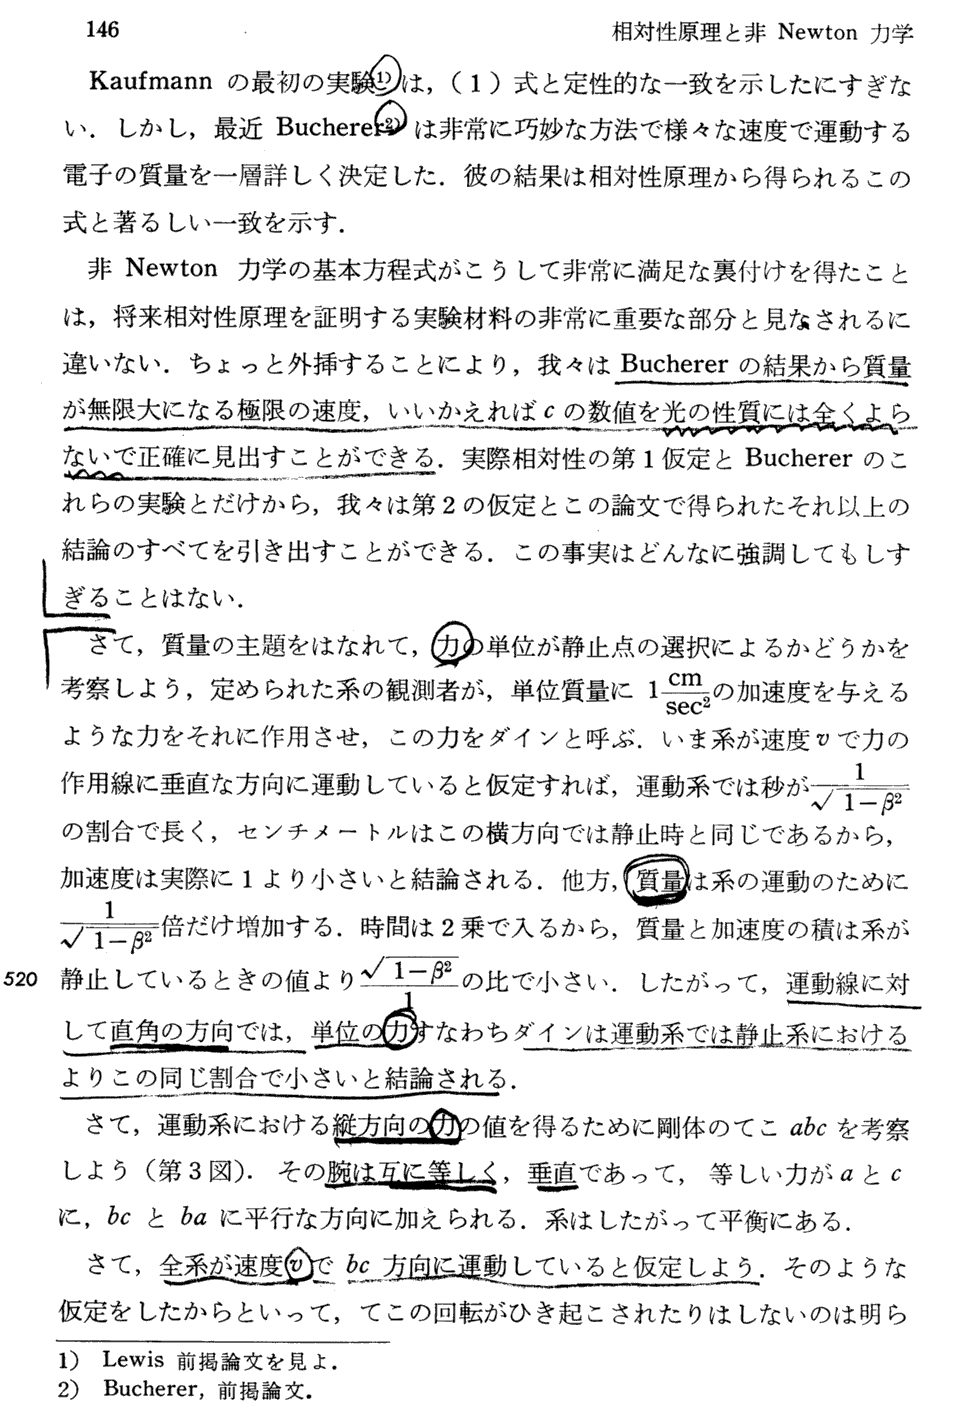 146 相対性原理と非 Newton 力学
Kaufmann の最初の実験1)は,(1)式と定性的な一致を示したにすぎな
い.しかし,最近 Bucherer2) は非常に巧妙な方法で様々な速度で運動する
電子の質量を一層詳しく決定した.彼の結果は相対性原理から得られるこの
式と著るしい一致を示す.
非 Newton 力学の基本方程式がこうして非常に満足な裏付けを得たこと
は,将来相対性原理を証明する実験材料の非常に重要な部分と見なされるに
違いない.ちょっと外挿することにより,我々は Bucherer の結果から質量
が無限大になる極限の速度,いいかえれば c の数値を光の性質には全くよら
ないで正確に見出すことができる.実際相対性の第1仮定と Bucherer のこ
れらの実験とだけから,我々は第2の仮定とこの論文で得られたそれ以上の
結論のすべてを引き出すことができる.この事実はどんなに強調してもしす
ぎることはない.
さて,質量の主題をはなれて,力の単位が静止点の選択によるかどうかを
考察しよう,定められた系の観測者が,単位質量に 1 cm/sec² の加速度を与える
ような力をそれに作用させ,この力をダインと呼ぶ.いま系が速度 v で力の
作用線に垂直な方向に運動していると仮定すれば,運動系では秒が 1/√(1−β²)
の割合で長く,センチメートルはこの横方向では静止時と同じであるから,
加速度は実際に1より小さいと結論される.他方,質量は系の運動のために
1/√(1−β²) 倍だけ増加する.時間は2乗で入るから,質量と加速度の積は系が
520 静止しているときの値より √(1−β²)/1 の比で小さい.したがって,運動線に対
して直角の方向では,単位の力すなわちダインは運動系では静止系における
よりこの同じ割合で小さいと結論される.
さて,運動系における縦方向の力の値を得るために剛体のてこ abc を考察
しよう(第3図).その腕は互に等しく,垂直であって,等しい力が a と c
に,bc と ba に平行な方向に加えられる.系はしたがって平衡にある.
さて,全系が速度 v で bc 方向に運動していると仮定しよう.そのような
仮定をしたからといって,てこの回転がひき起こされたりはしないのは明ら
1) Lewis 前掲論文を見よ.
2) Bucherer, 前掲論文.